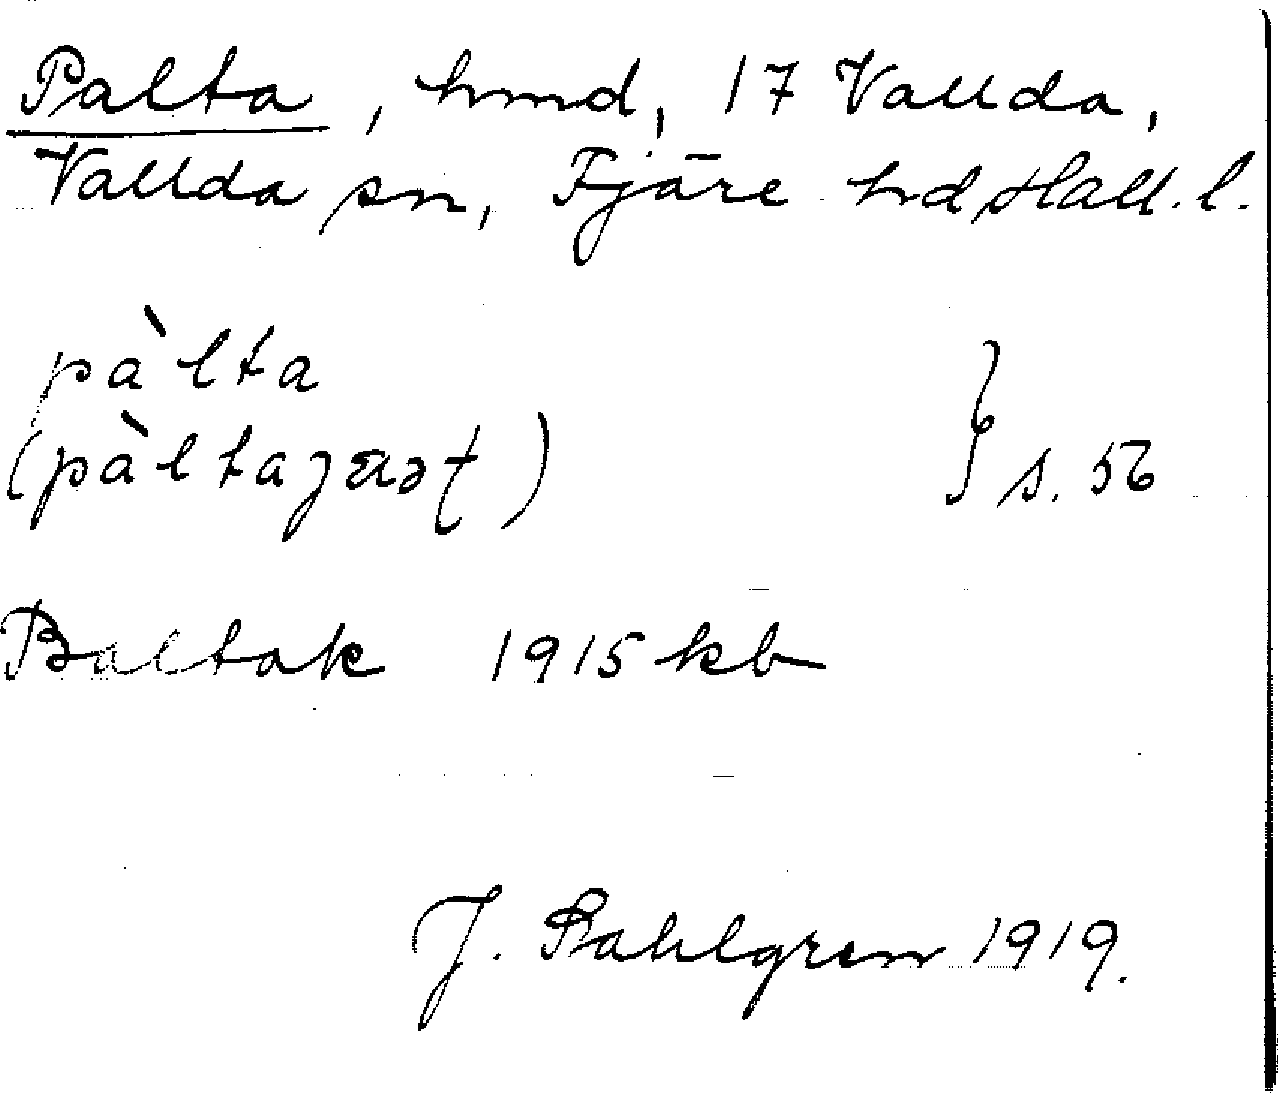 Palta, hmd, 17 Vallda,
Vallda sn, Fjäre hd Hall. l.
pàlta
(pàltagæət) } s. 56
Baltak 1915 kb
J. Sahlgren 1919.